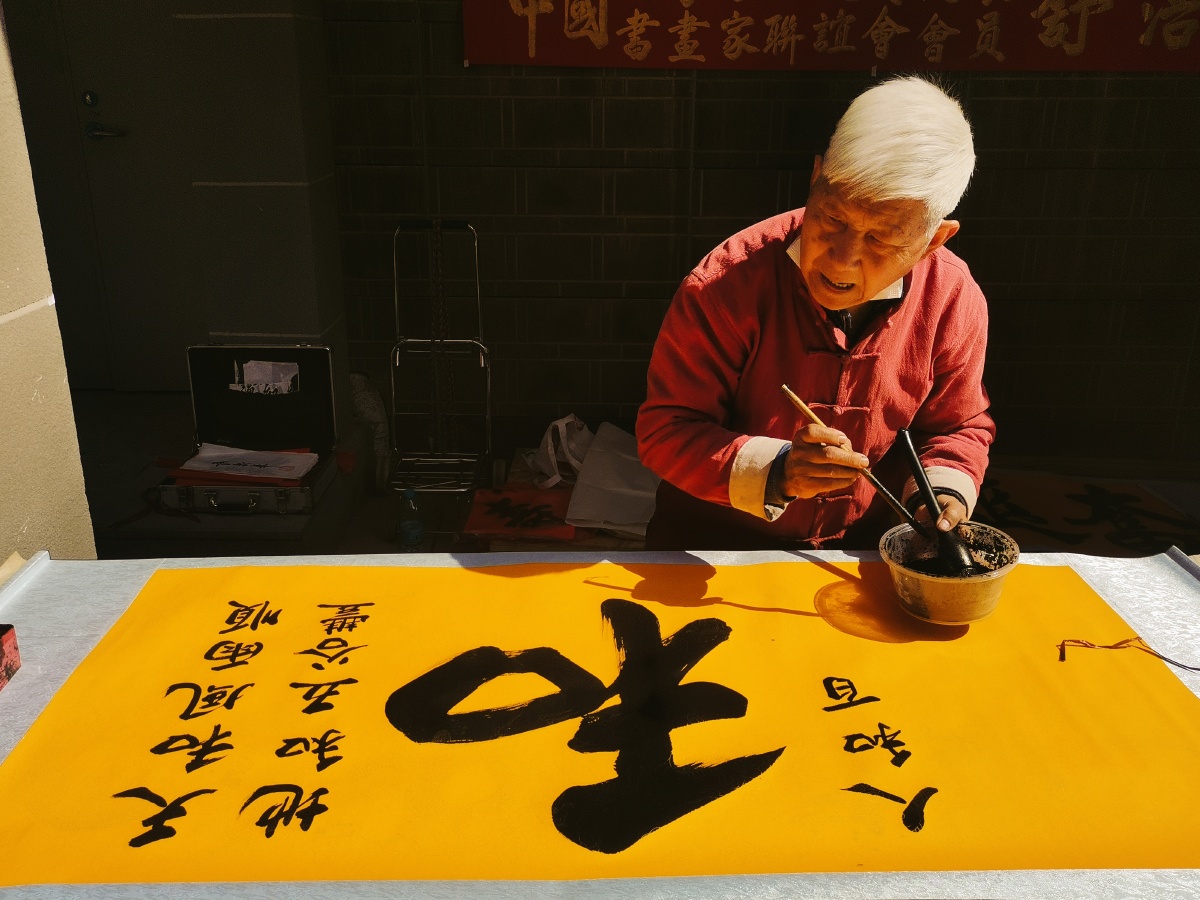 中國
書畫家聯誼會會員
舒
天和風雨順
地和五谷豐
和
人和百